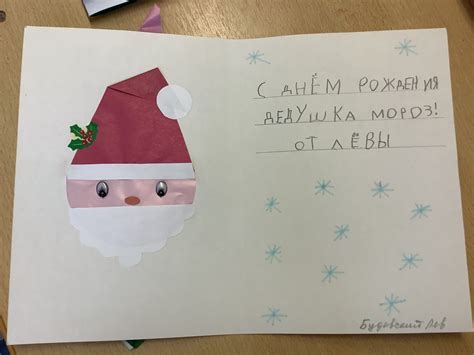 С ДНЁМ РОЖДЕНИЯ
ДЕДУШКА МОРОЗ!
ОТ ЛЁВЫ
Будовский Лев